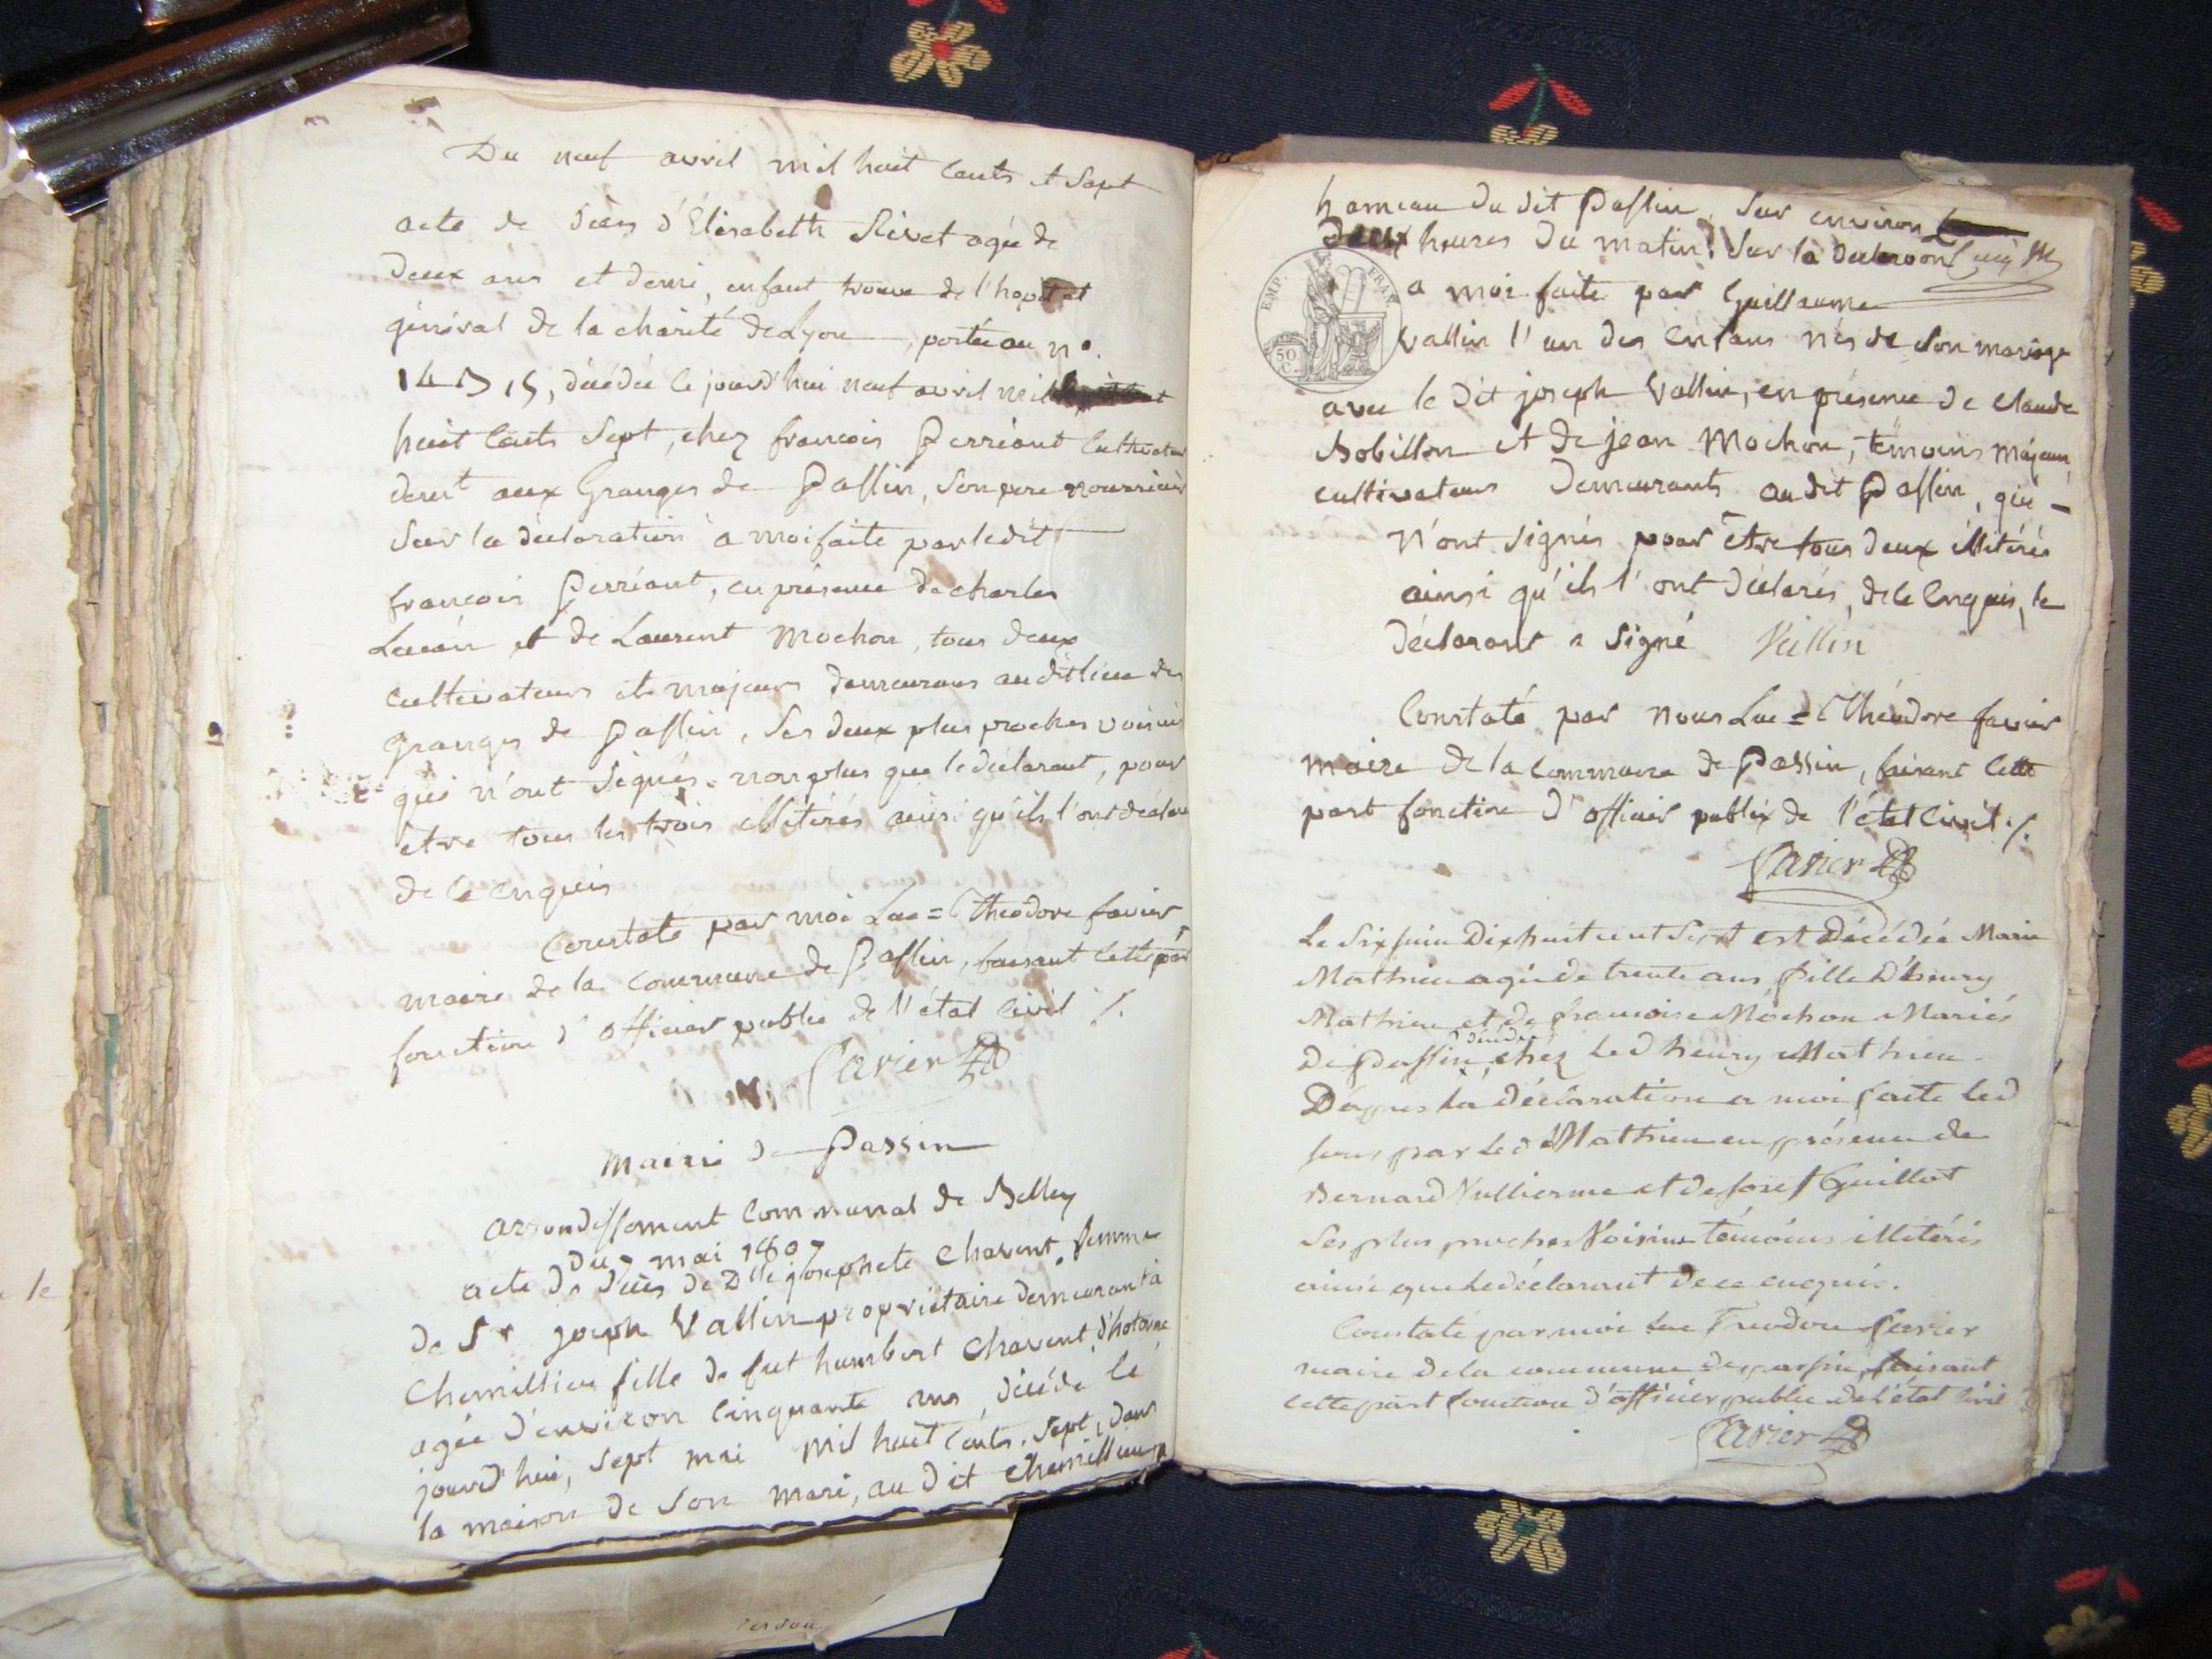 Du neuf avril mil huit cents et sept
acte de décès d'Élisabeth Rivet agée de
deux ans et demi, enfant trouvé de l'hopital
général de la charité de Lyon, portée au n°.
décédée le jourd'hui neuf avril mil
huit cents sept, chez francois Perriant cultivateur
demt aux Granges de Passin, son pere nourricier
Sur la déclaration a moi faite par ledit
francois Perriant, en présence de charles
et de Laurent Mochon, tous deux
cultivateurs et majeurs demeurans au dit lieu des
Granges de Passin, ses deux plus proches voisins
qui n'ont signés non plus que le déclarant, pour
etre tous les trois illitérés ainsi qu'ils l'ont déclaré
de ce enquis
Constaté par moi Luc=Théodore favier
maire de la commune de Passin, faisant cette part
fonction d'officier public de l'état civil ./.
Favier
Mairie de Passin
arrondissement communal de Belley
Du 7 mai 1807
acte de décès de Dlle josephete Chavent, femme
de Sr joseph Vallin propriétaire demeurant à
Chemillieu fille de fut humbert Chavent, d'hotonne
agée d'environ cinquante ans, décédée le
jourd'hui, sept mai mil huit cents sept, dans
la maison de son mari, au dit Chemillieu
hameau du dit Passin, sur environ
deux heures du matin. Sur la déclaration
EMP. FRAN
50 C.
a moi faite par Guillaume
Vallin l'un des enfans nés de son mariage
avec le dit joseph Vallin, en présence de Claude
Bobillon et de jean Mochon, témoins majeurs,
cultivateurs demeurants au dit Passin, qui -
n'ont signés pour être tous deux illitérés
ainsi qu'ils l'ont déclarés, de ce enquis, le
déclarant a signé Vallin
Constaté par nous Luc=Théodore favier
maire de la commune de Passin, faisant cette
part fonction d'officier public de l'état civil ./.
Favier
Le six juin dix huit cent sept est décédée Marie
Mathieu agée de trente ans, fille d'henry
Mathieu et de francoise Mochon Mariés
décédée
de Passin, chez led henry Mathieu
D'après la déclaration a moi faite led
jour par led Mathieu en présence de
Bernard Vullierme et de josef Guillot
ses plus proches voisins témoins illitérés
ainsi que le déclarant de ce enquis.
Constaté par moi Luc Theodore favier
maire de la commune de passin, faisant
cette part fonction d'officier public de l'état civil
Favier